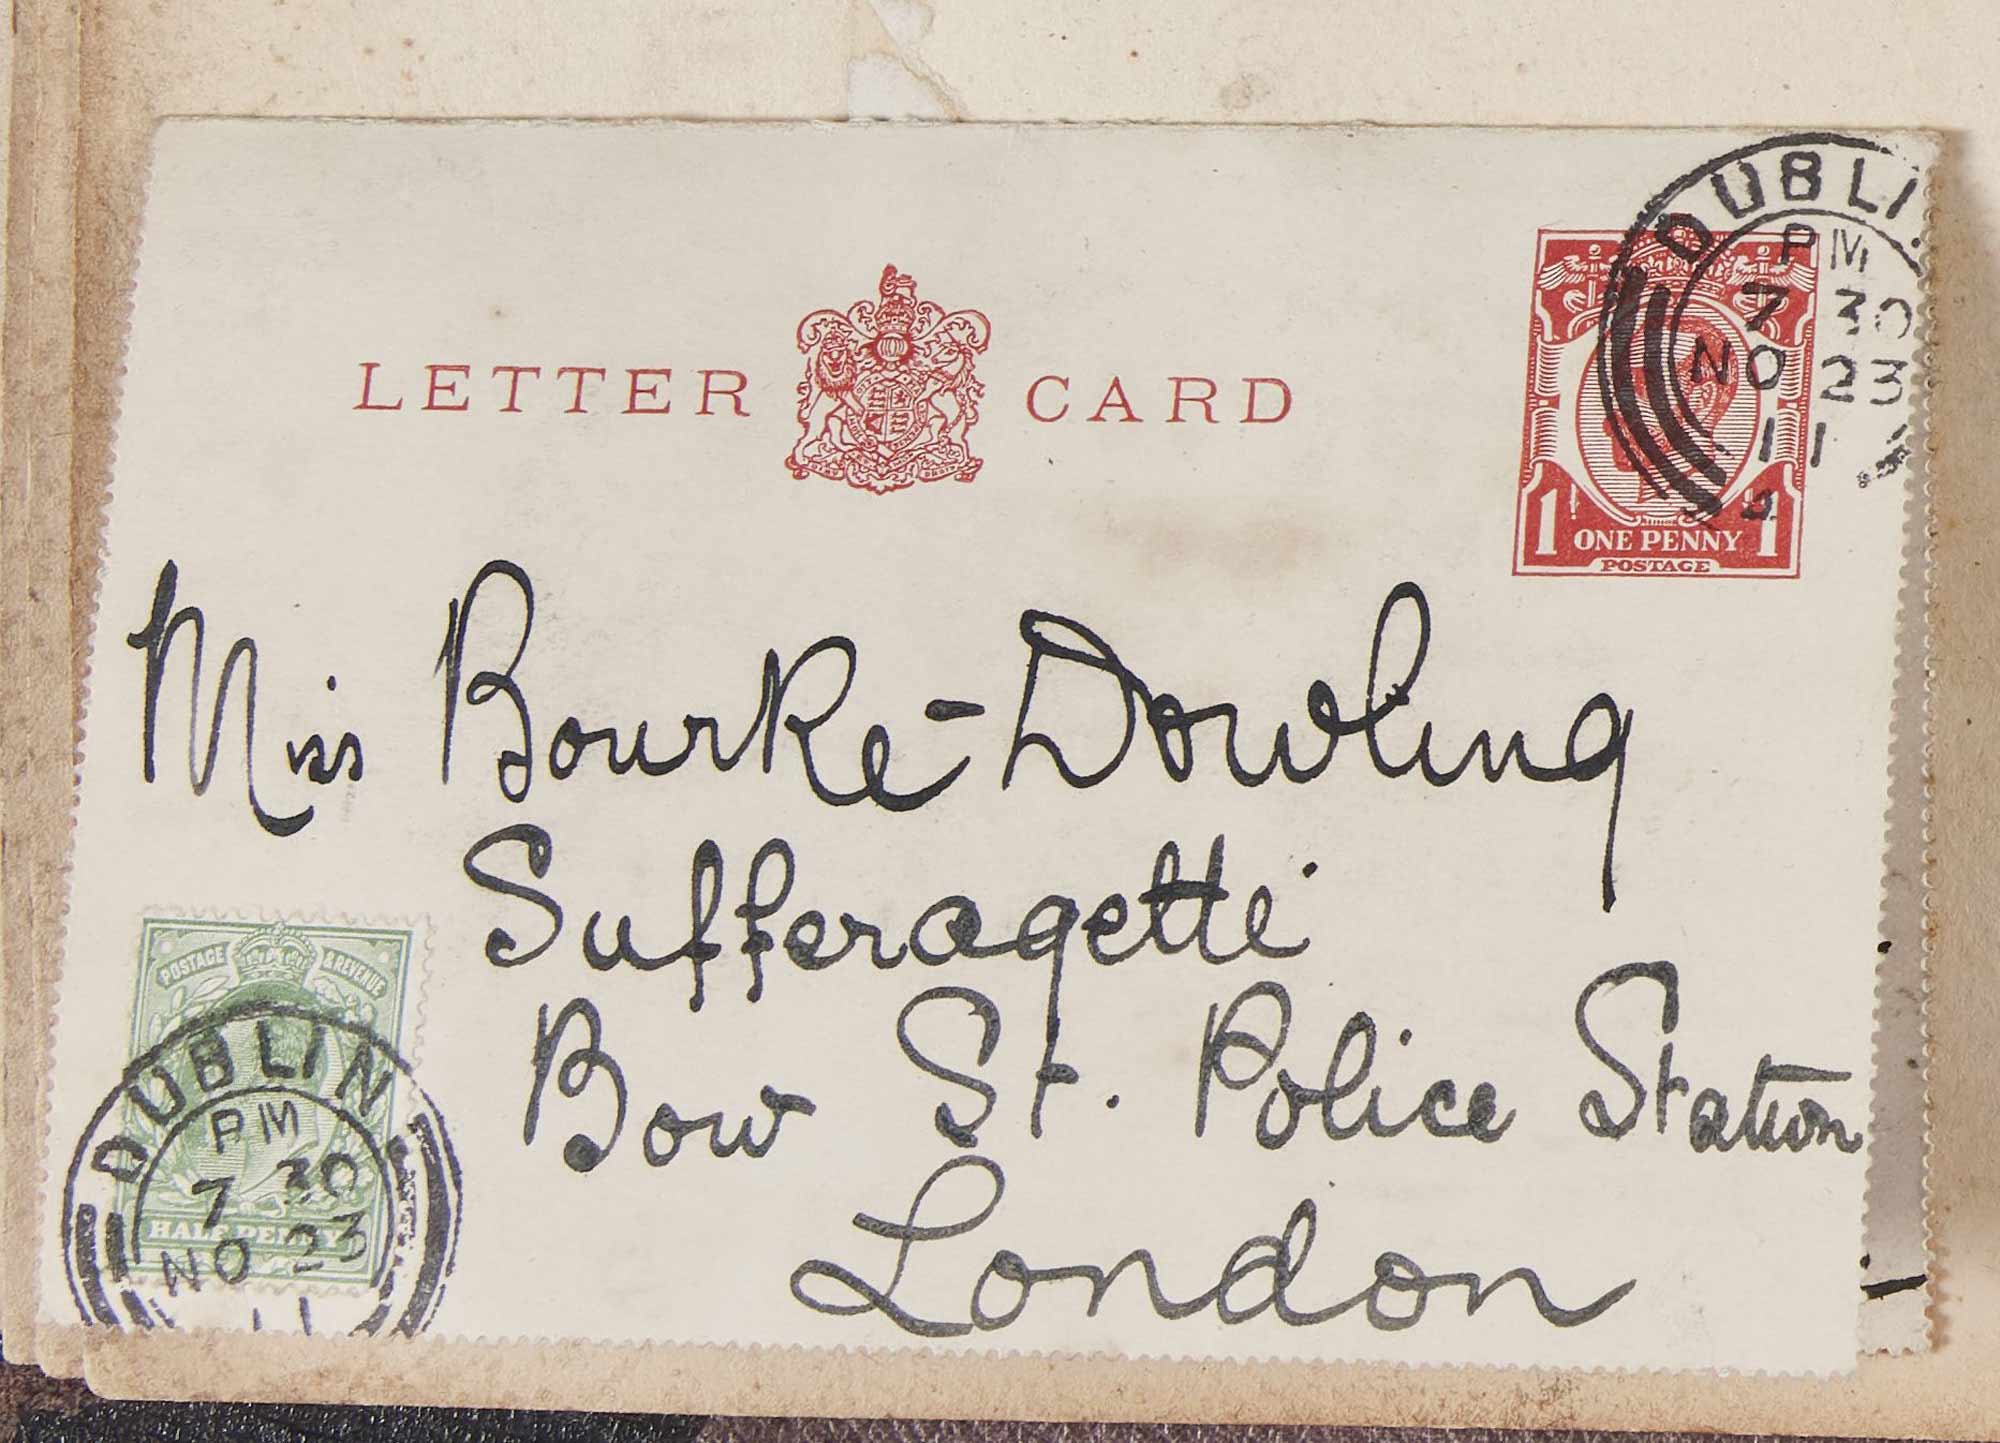 LETTER CARD
DUBLIN
PM
7 30
NO 23
11
1 ONE PENNY 1
POSTAGE
Miss Bourke-Dowling
Sufferagette
Bow St. Police Station
London
POSTAGE & REVENUE
DUBLIN
PM
7 30
NO 23
11
HALFPENNY